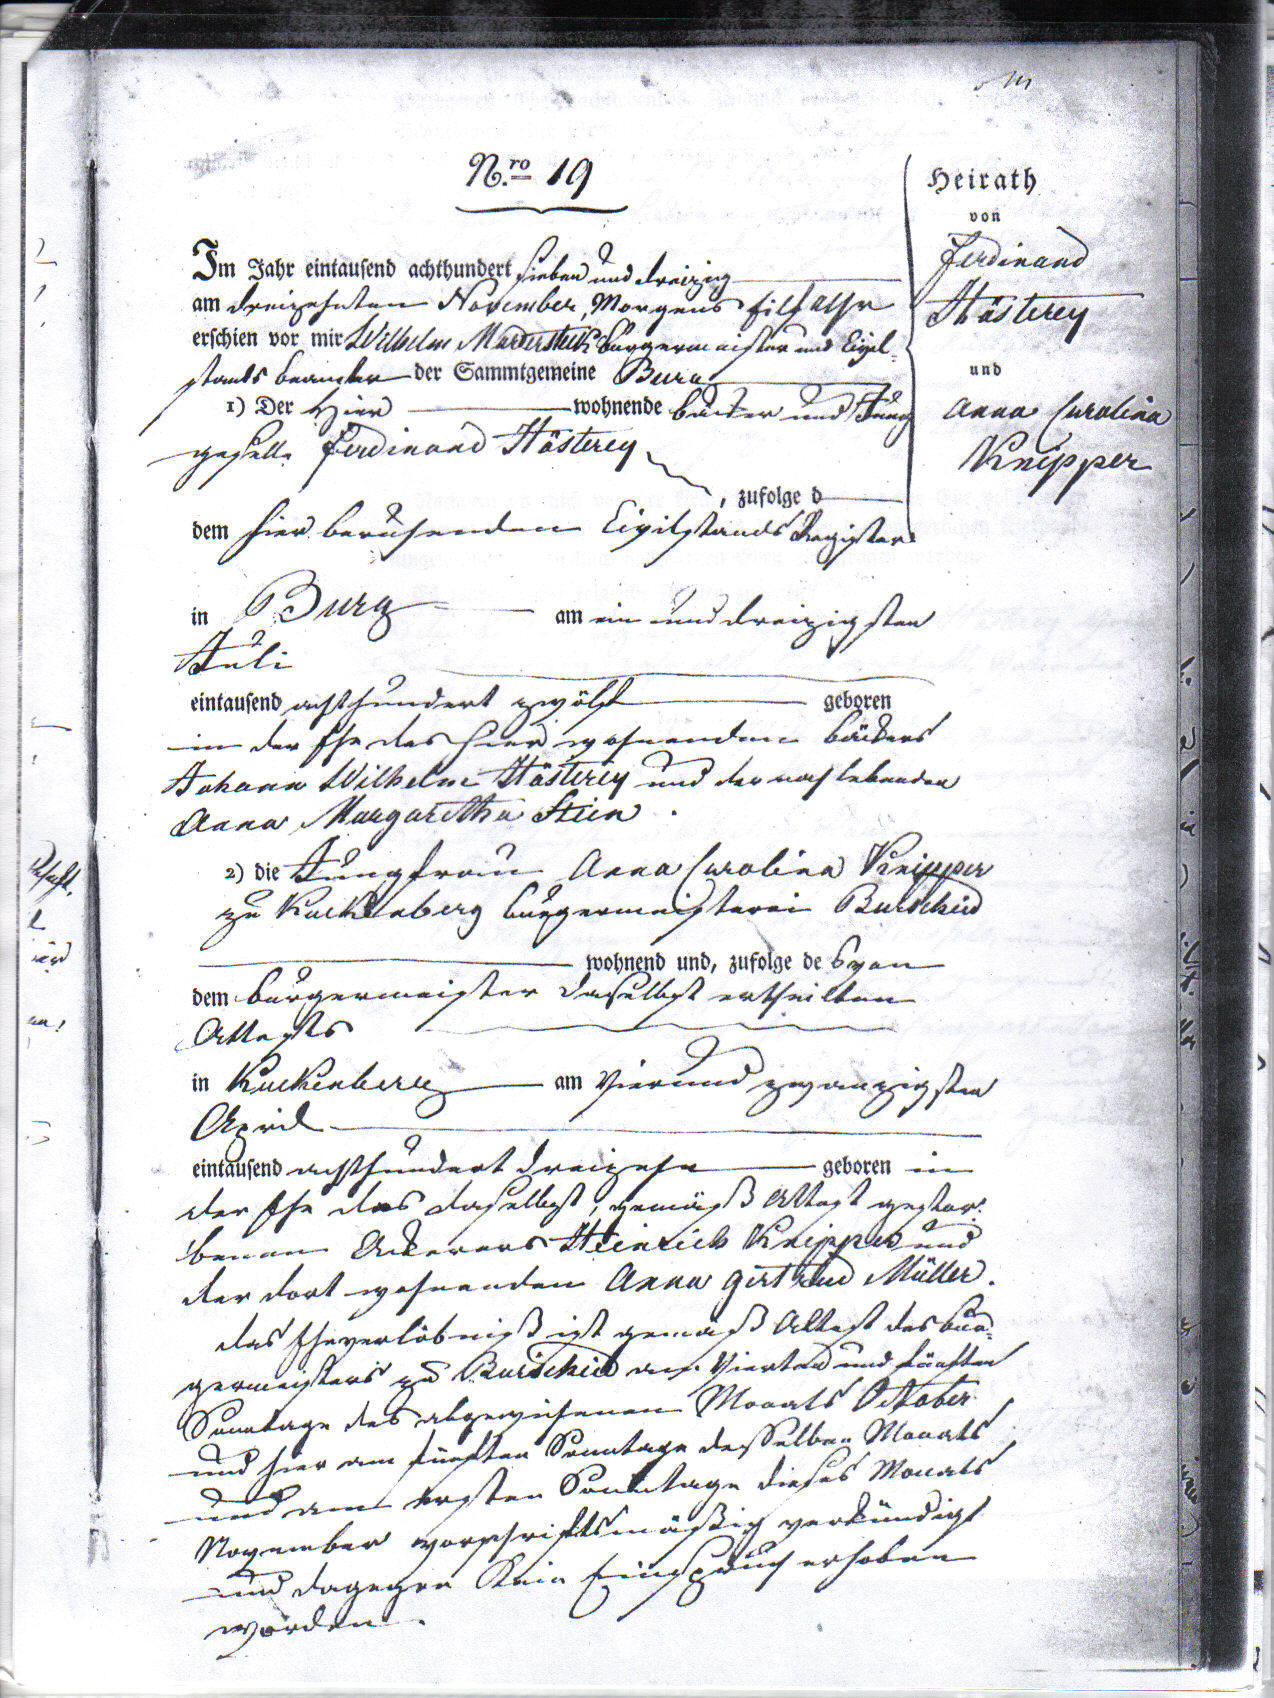 N.ro 19
Heirath
von
Ferdinand
Hösterey
und
Anna Carolina
Knipper
Im Jahr eintausend achthundert sieben und dreizig
am dreizehnten November, Morgens eilf Uhr
erschien vor mir Wilhelm Mardersteck Bürgermeister und Civil-
stands beamter der Sammtgemeine Burg
1) Der Hier wohnende bäcker und Jung
geselle Ferdinand Hösterey
, zufolge d
dem hier beruhenden Civilstands Register
in Burg am ein und dreizigsten
Juli
eintausend achthundert zwölf geboren
in der Ehe des hier wohnenden bäckers
Johann Wilhelm Hösterey und der noch lebenden
Anna Margaretha Stein.
2) die Jungfrau Anna Carolina Knipper
zu Kuckenberg bürgermeisterei Burscheid
wohnend und, zufolge des von
dem bürgermeister daselbst ertheilten
Attestes
in Kuckenberg am vier und zwanzigsten
April
eintausend achthundert dreizehn geboren in
der Ehe des daselbst, gemäß Attest gestor-
benen Ackerers Heinrich Knipper und
der dort wohnenden Anna Gertrud Müller.
das Eheverlöbniß ist gemäß Attest des bür-
germeisters zu Burscheid am vierten und fünften
Sonntage des abgewichenen Monats October
und hier am fünften Sonntage desselben Monats
und am ersten Sonntage dieses Monats
November vorschriftsmäßig verkündigt
und dagegen kein Einspruch erhoben
worden.